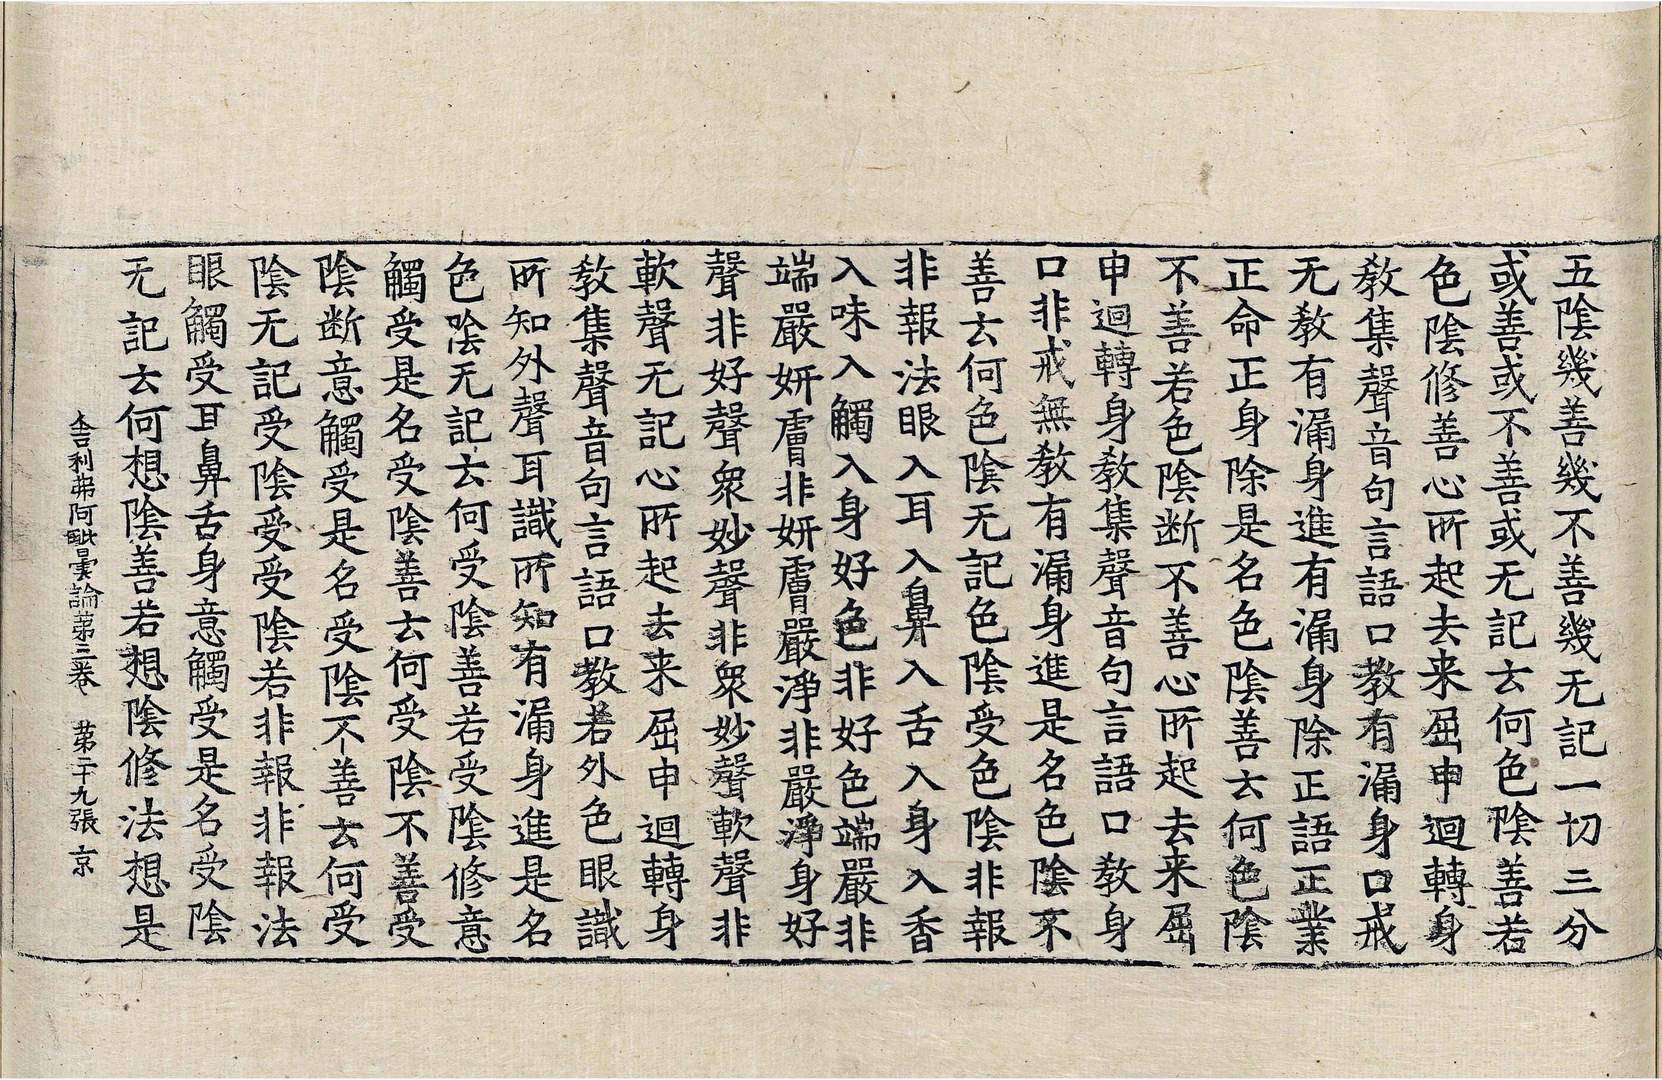 五陰幾善幾不善幾无記一切三分
或善或不善或无記云何色陰善若
色陰修善心所起去来屈申迴轉身
教集聲音句言語口教有漏身口戒
无教有漏身進有漏身除正語正業
正命正身除是名色陰善云何色陰
不善若色陰断不善心所起去来屈
申迴轉身教集聲音句言語口教身
口非戒無教有漏身進是名色陰不
善云何色陰无記色陰受色陰非報
非報法眼入耳入鼻入舌入身入香
入味入觸入身好色非好色端嚴非
端嚴妍膚非妍膚嚴淨非嚴淨身好
聲非好聲衆妙聲非衆妙聲軟聲非
軟聲无記心所起去来屈申迴轉身
教集聲音句言語口教若外色眼識
所知外聲耳識所知有漏身進是名
色陰无記云何受陰善若受陰修意
觸受是名受陰善云何受陰不善受
陰断意觸受是名受陰不善云何受
陰无記受陰受受陰若非報非報法
眼觸受耳鼻舌身意觸受是名受陰
无記云何想陰善若想陰修法想是
舍利弗阿毗曇論第三卷 第二十九張 京